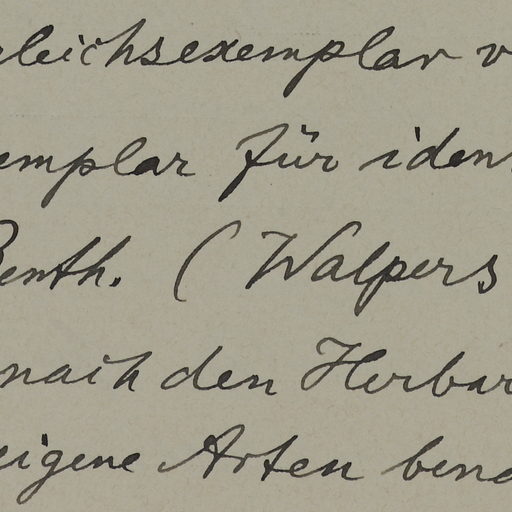 gleichsexemplar v
emplar für iden
Benth. (Walpers
nach den Herbar
eigene Arten bena